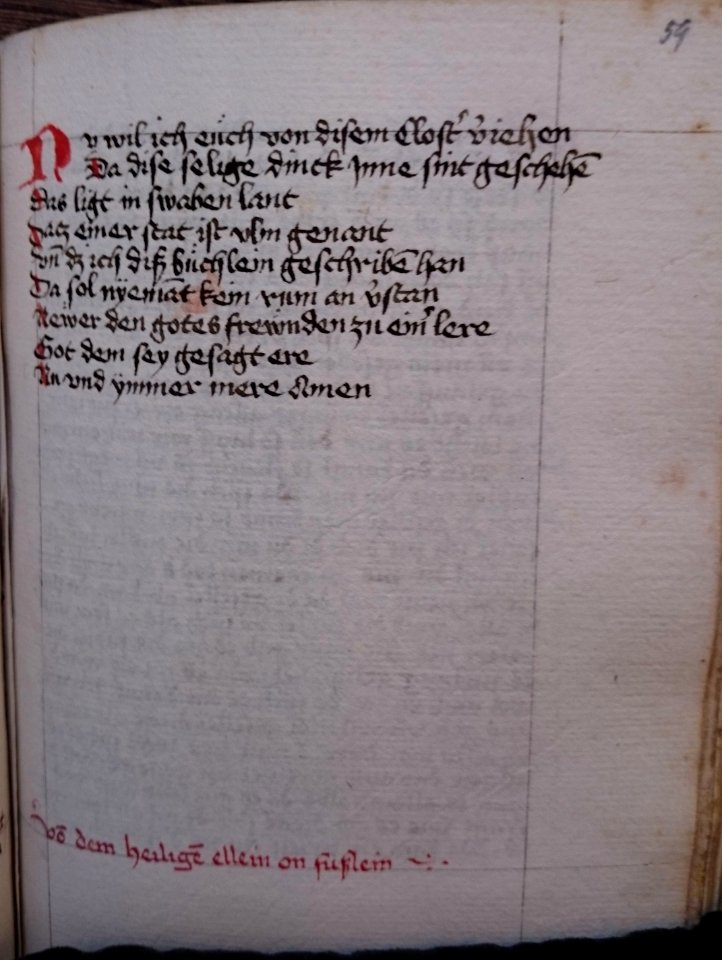 59
Nv wil ich eüch von disem Clost᷑ v᷑iehen
Da dise selige dinck Jnne sint geschehē
Das ligt in swaben lant
Datz einer stat ist vlm genant
Vn̄ dz ich diß büchlein geschribē han
Da sol nÿemāt kein rum an v᷑stan
Newer den gotes frewnden zu eim᷑ lere
Got dem sey gesagt ere
Nu vnd ÿmmer mere Amen
Vō dem heiligē ellein on füßlein